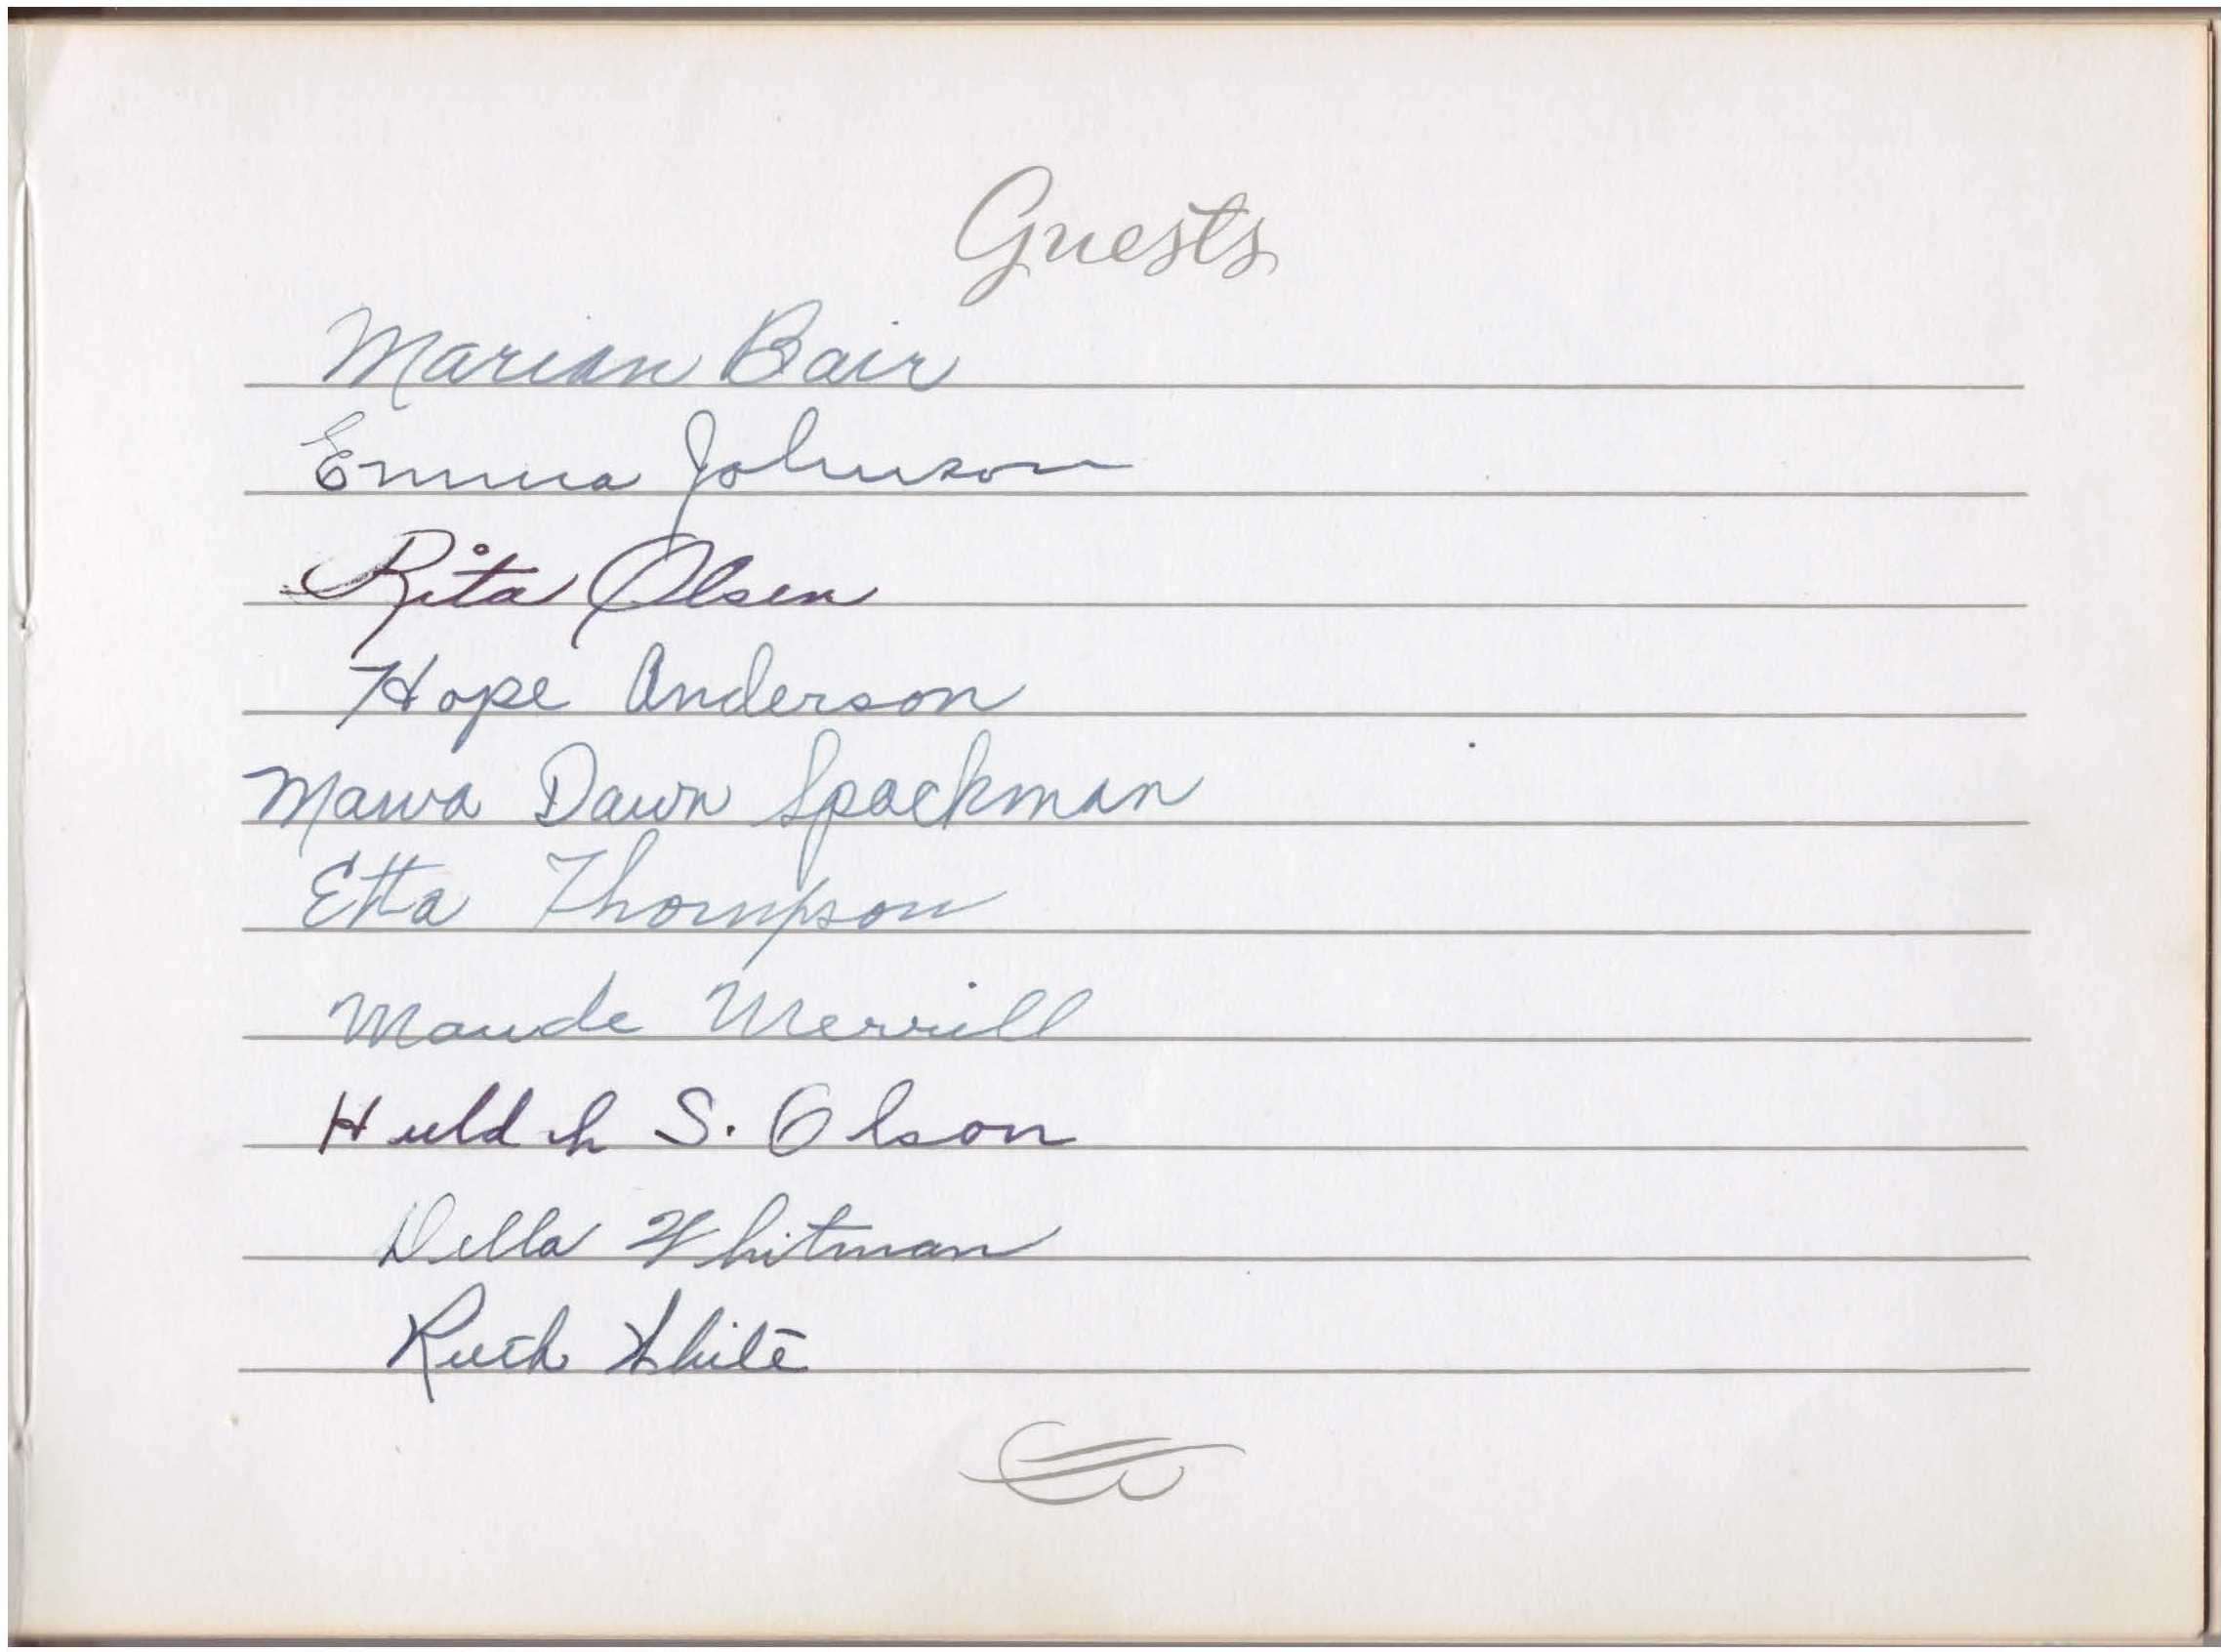 Guests
Marian Bair
Emma Johnson
Rita Olsen
Hope Anderson
Dawn Spackman
Etta Thompson
Maude Merrill
S. Olson
Della Whitman
Ruth White